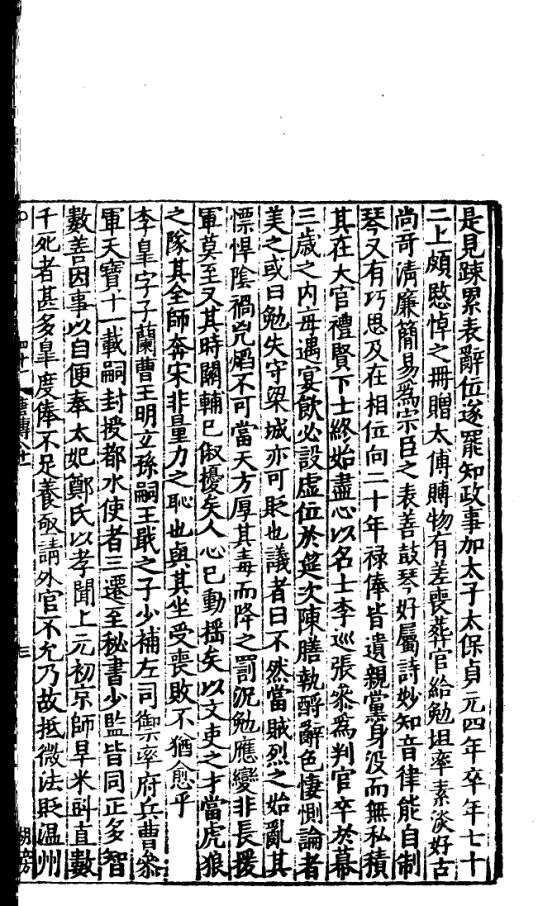 是見踈累表辭位遂罷知政事加太子太保貞元四年卒年七十
二上頗愍悼之冊贈太傅賻物有差喪葬官給勉坦率素淡好古
尚奇清廉簡易爲宗臣之表善鼓琴好屬詩妙知音律能自制
琴又有巧思及在相位向二十年禄俸皆遺親黨身没而無私積
其在大官禮賢下士終始盡心以名士李巡張叅爲判官卒於幕
三歲之内每遇宴飲必設虚位於筵次陳膳執酹辭色悽惻論者
美之或曰勉失守梁城亦可貶也議者曰不然當賊烈之始亂其
慓悍陰禍兇熖不可當天方厚其毒而降之罰況勉應變非長援
軍莫至又其時關輔已俶擾矣人心已動揺矣以文吏之才當虎狼
之隊其全師奔宋非量力之恥也與其坐受喪敗不猶愈乎
李皋字子蘭曹王明玄孫嗣王戢之子少補左司禦率府兵曹叅
軍天寶十一載嗣封授都水使者三遷至秘書少監皆同正多智
數善因事以自便奉太妃鄭氏以孝聞上元初京師旱米㪷直數
千死者甚多皋度俸不足養亟請外官不允乃故抵微法貶温州
三